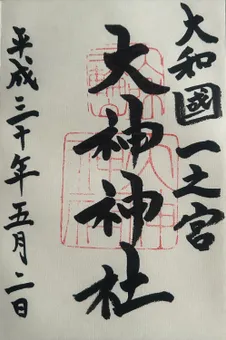 大和國一之宮
大神神社
平成三十年五月二日